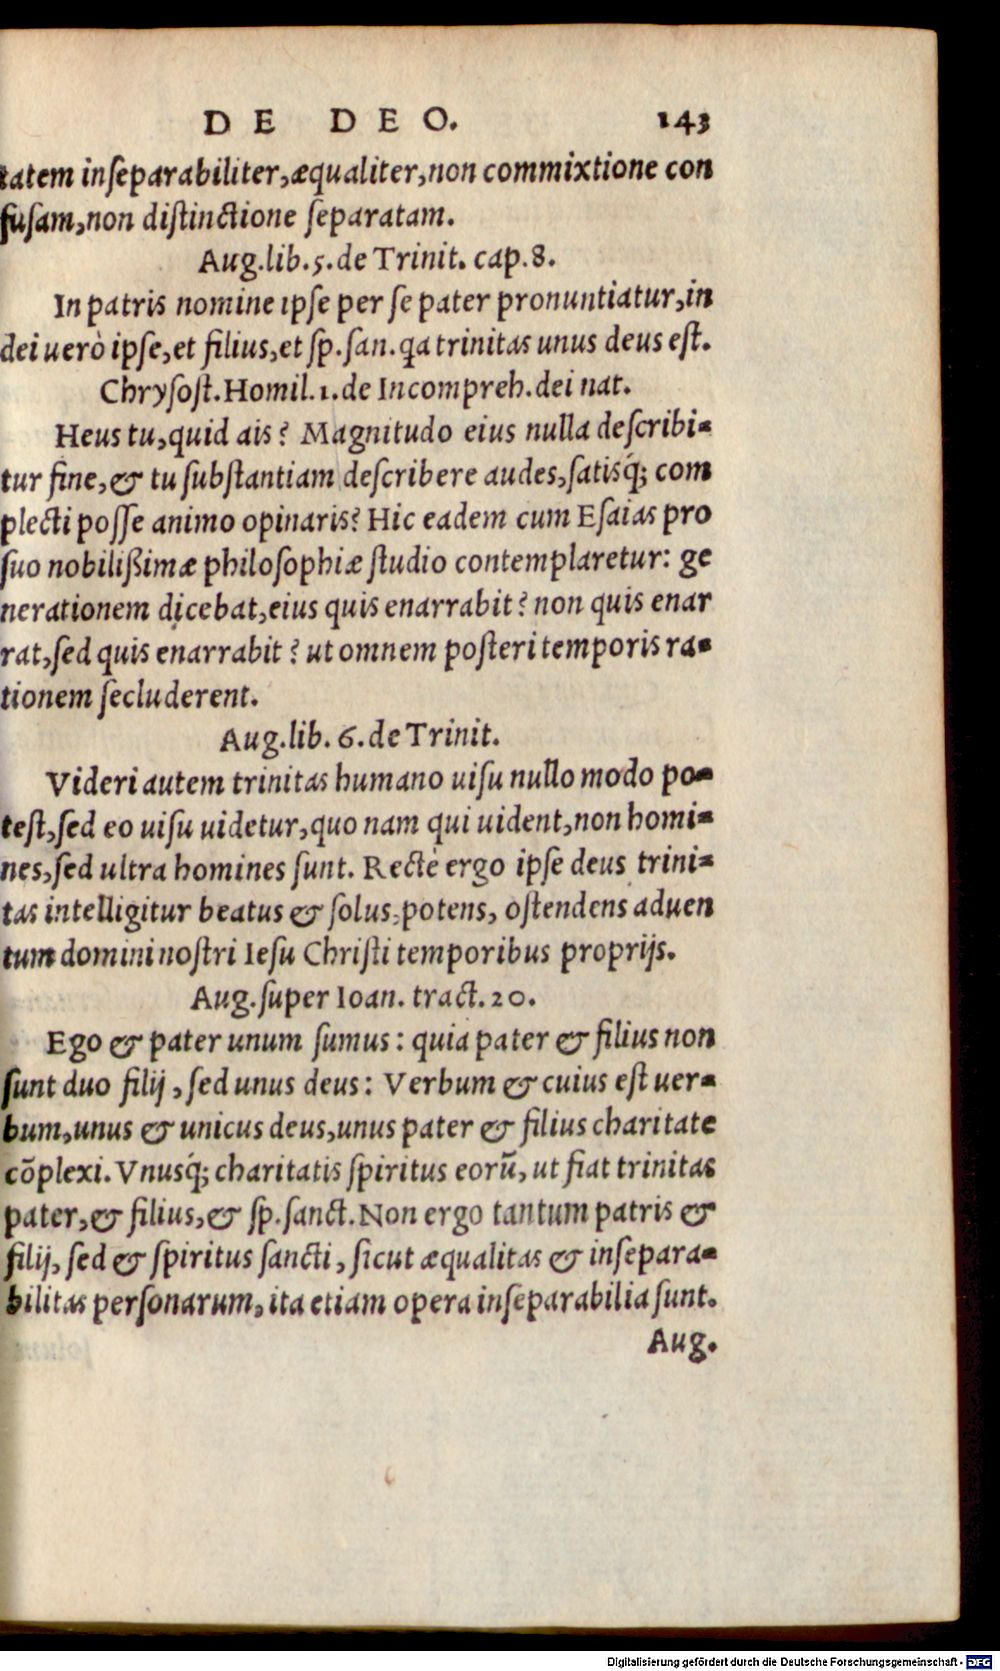 DE DEO. 143
tatem inſeparabiliter,æqualiter,non commixtione con
fuſam,non diſtinctione ſeparatam.
Aug.lib.5.de Trinit. cap.8.
In patris nomine ipſe per ſe pater pronuntiatur,in
dei uerò ipſe,et filius,et ſp.ſan.qa trinitas unus deus eſt.
Chryſoſt.Homil.1.de Incompreh.dei nat.
Heus tu,quid ais? Magnitudo eius nulla deſcribi-
tur fine,& tu ſubſtantiam deſcribere audes,ſatisq́; com
plecti poſſe animo opinaris? Hic eadem cum Eſaias pro
ſuo nobilißimæ philoſophiæ ſtudio contemplaretur: ge
nerationem dicebat,eius quis enarrabit? non quis enar
rat,ſed quis enarrabit? ut omnem poſteri temporis ra-
tionem ſecluderent.
Aug.lib. 6.de Trinit.
Videri autem trinitas humano uiſu nullo modo po-
teſt,ſed eo uiſu uidetur,quo nam qui uident,non homi-
nes,ſed ultra homines ſunt. Rectè ergo ipſe deus trini-
tas intelligitur beatus & ſolus potens, oſtendens aduen
tum domini noſtri Ieſu Chriſti temporibus proprijs.
Aug.ſuper Ioan. tract.20.
Ego & pater unum ſumus: quia pater & filius non
ſunt duo filij, ſed unus deus: Verbum & cuius eſt uer-
bum,unus & unicus deus,unus pater & filius charitate
cõplexi. Vnusq́; charitatis ſpiritus eorũ, ut fiat trinitas
pater,& filius,& ſp.ſanct.Non ergo tantum patris &
filij, ſed & ſpiritus ſancti, ſicut æqualitas & inſepara-
bilitas perſonarum, ita etiam opera inſeparabilia ſunt.
Aug.
Digitalisierung gefördert durch die Deutsche Forschungsgemeinschaft - DFG